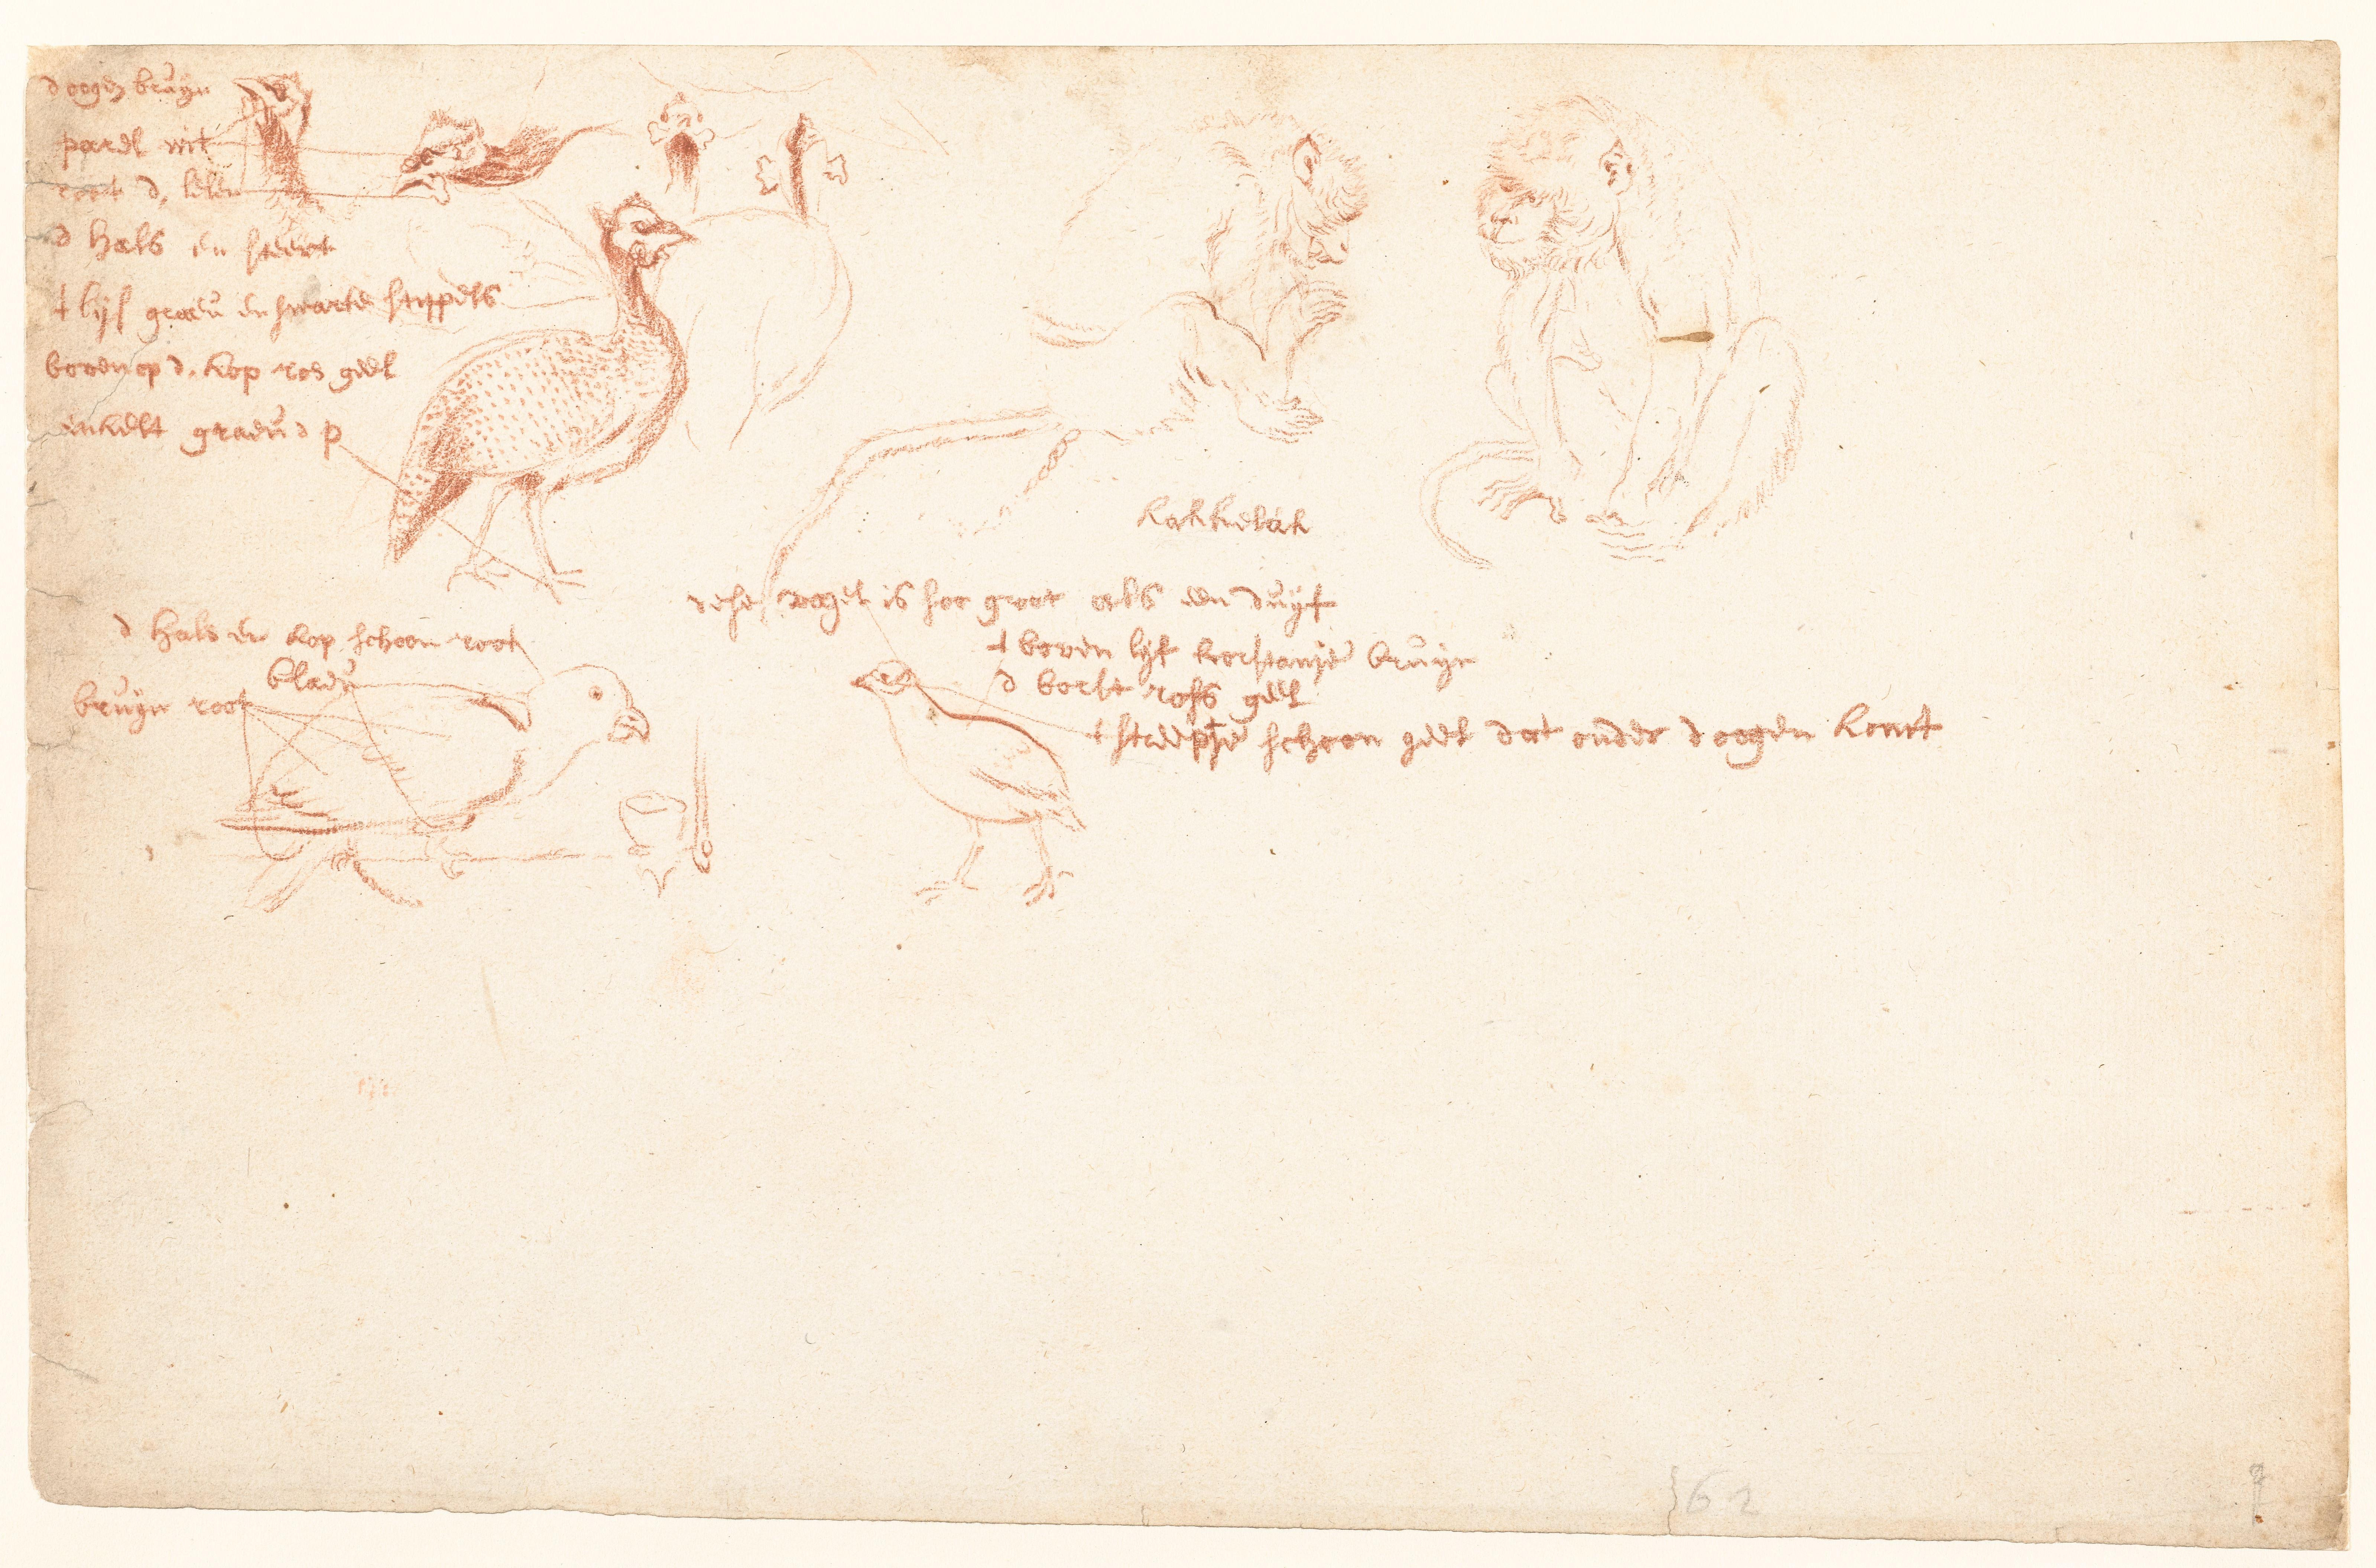 d oogen bruijn
paerl wit
root d, lelen
d hals en steert
t lijf graeu en swarte stippels
boven op d. kop ros geel
inkelt graeu d p
kakkelack
dese vogel is soo groot als een duijf
t boven lijf korstanje bruijn
d borst ross geel
t streepje schoon geel dat onder d oogen komt
d hals en kop schoon root
blaeu
bruijn root
62